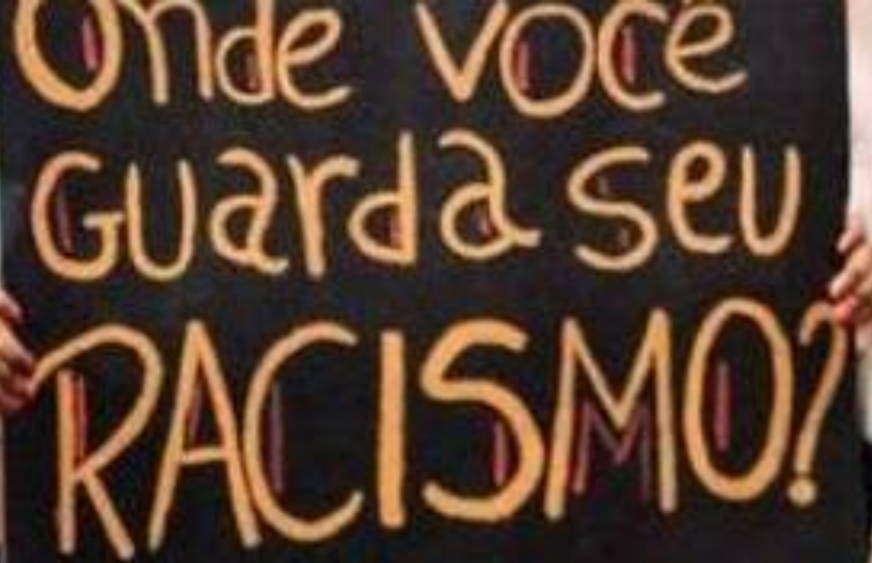 Onde você
Guarda seu
RACISMO?